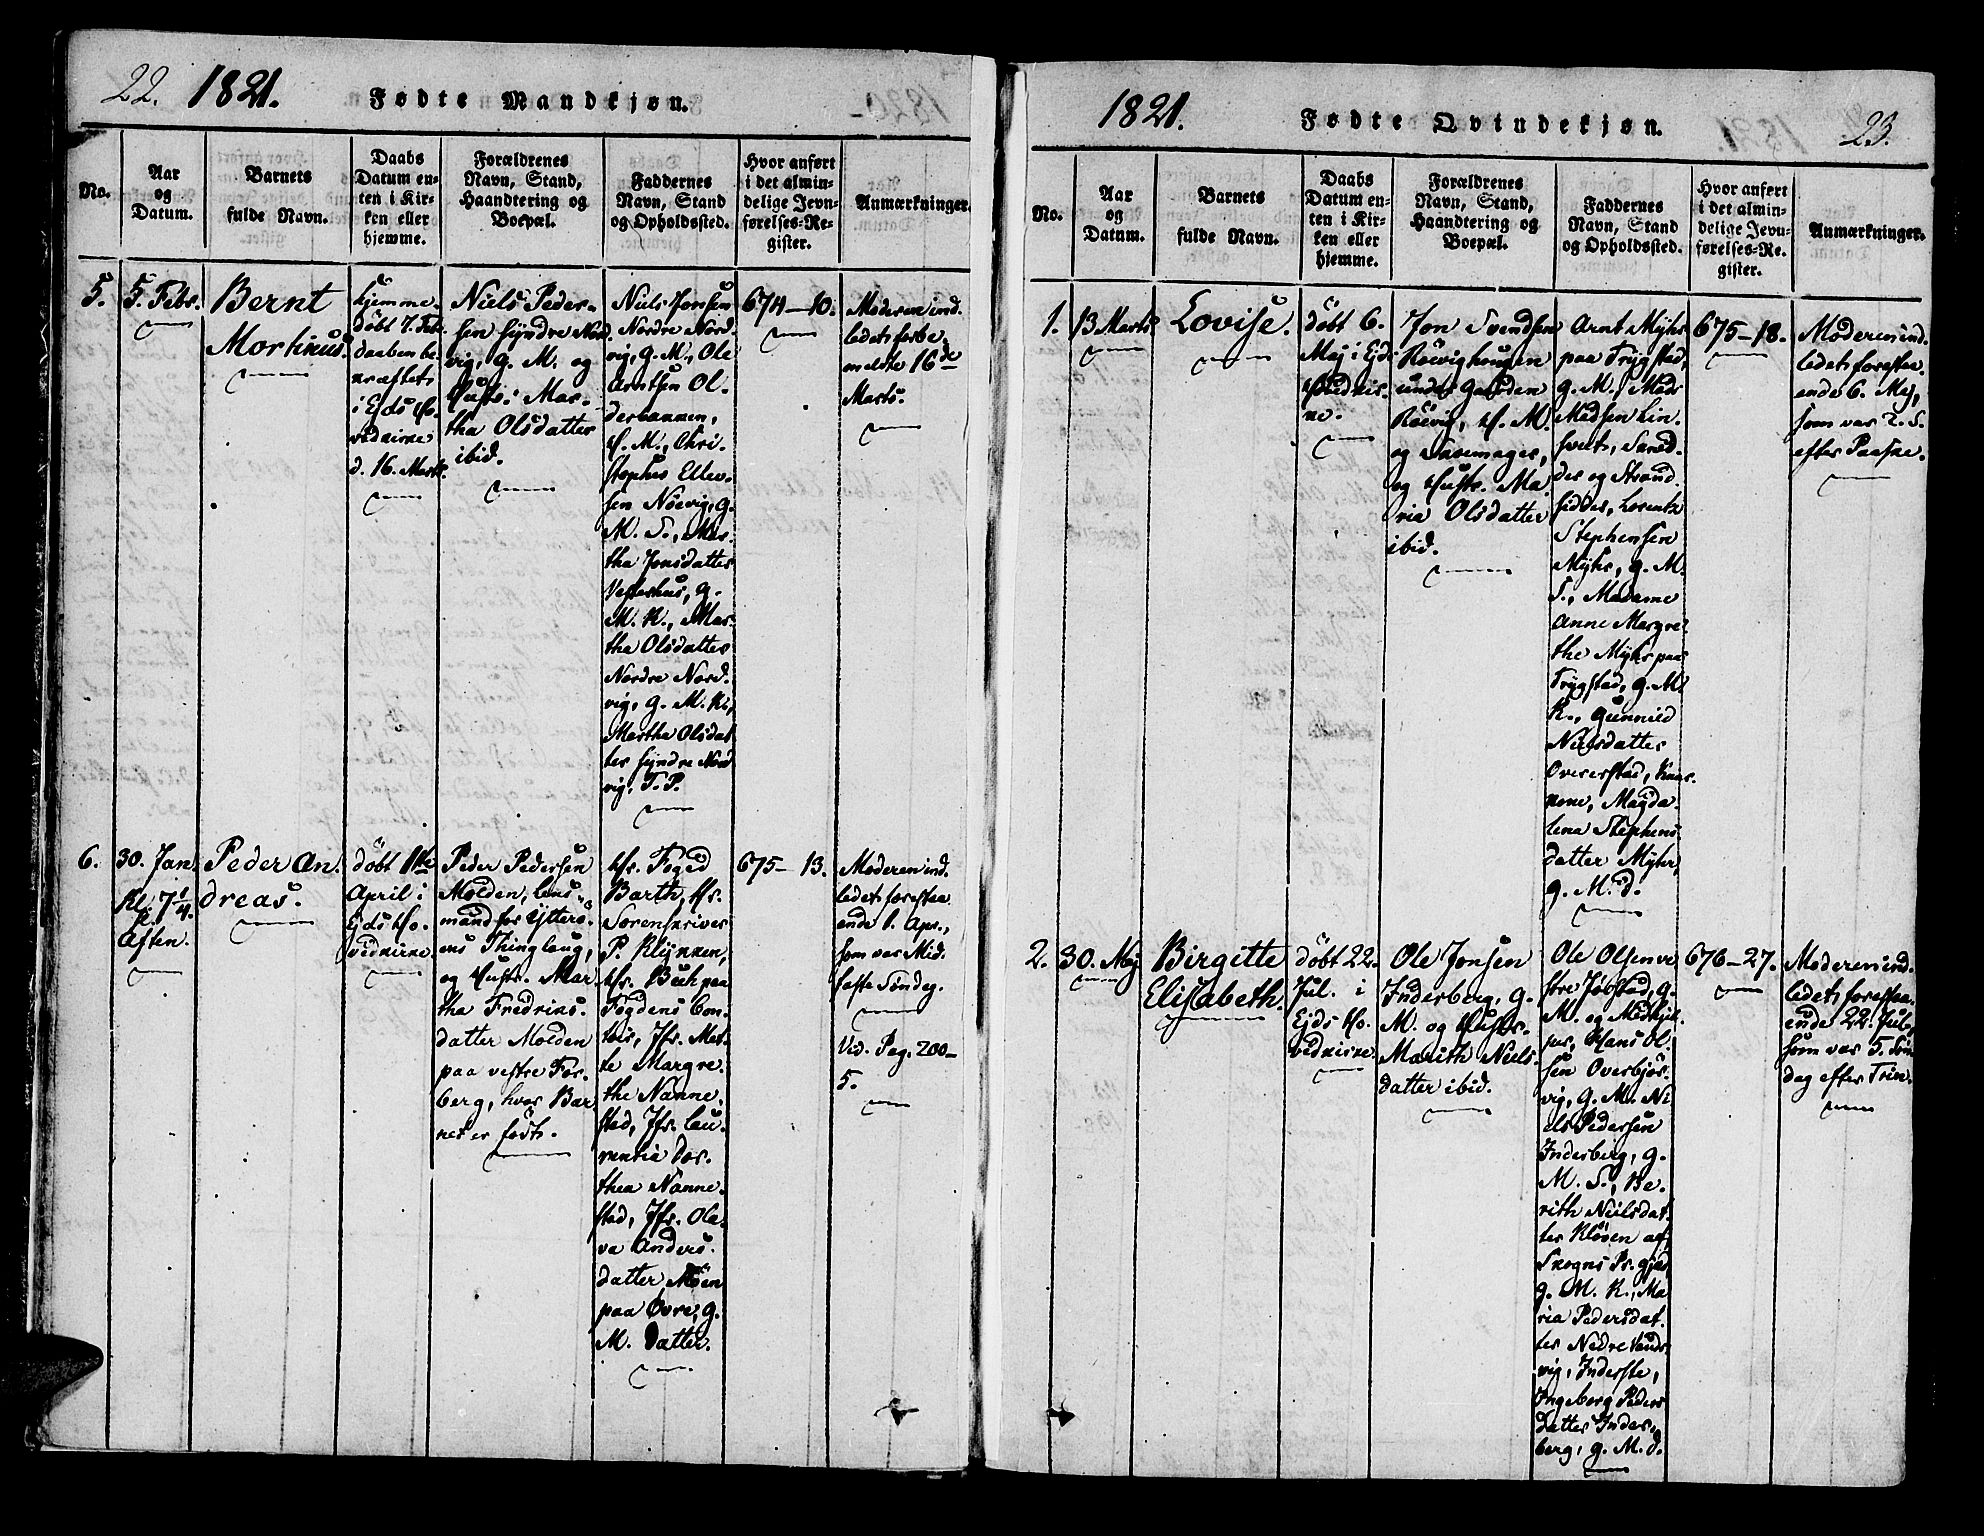 22. 1821. Fødte Mandkjøn.
No.
Aar
og
Datum.
Barnets
fulde Navn.
Daabs
Datum en-
ten i Kir-
ken eller
hjemme.
Forældrenes
Navn, Stand,
Haandtering og
Boepæl.
Faddernes
Navn, Stand
og Opholdssted.
Hvor anført
i det almin-
delige Jevn-
førelses-Re-
gister.
Anmærkninger.
5.
5. Febr.
Bernt
Morkinus.
hjemme-
döbt 7. Feb.
daaben be-
kræftet
i Ejds Ho-
vedkirke
d. 16. Marts.
Niels Peder-
sen Syndre Nord
vig, G. M. og
Hust: Mar-
tha Olsdatter
ibid.
Niels Hansen
Nordre Nord-
vig, G. M., Ole
Arntsen Ol-
derbakken,
H. M., Chri-
stopher Ellev-
sen Nöevig, G.
M. S., Mar-
tha Jonsdatter
Vesterhus, G.
M. K., Mar-
tha Olsdatter
Nordre Nord-
vig, G. M. K.,
Martha Olsdat
ter Syndre Nord
vig, T. P.
674-10.
Moderen ind-
ledet forbe-
meldte 16de
Marts.
6.
30. Jan.
Kl. 7 1/4.
Aften.
Peder An-
dreas.
döbt 1ste
April i
Ejds Ho-
vedkirke.
Peder Pedersen
Molden, Lens-
mand for Ytterö-
ens Thinglaug,
og Hustr. Mar
tha Fredriks-
datter Molden
paa vestre Fos-
berg, hvor Bar
net er födt.
Hr. Foged
Barth, Hr.
Sorenskriver
P. Klykken,
Hr. Buch paa
Fogdens Con-
toir, Jfr. Met-
te Margre-
the Nanne-
stad, Jfr. Lau-
rentia Dor-
thea Nanne-
stad, Jfr. Ole-
va Anders-
datter Möen
paa Övre, G.
M. Datter.
675-13.
Moderen ind-
ledet forestaa-
ende 1. Apr.,
som var Mid-
faste Söndag.
Vid. Pag. 200-
5.
1821. Fødte Qvindekjøn. 23.
No.
Aar
og
Datum.
Barnets
fulde Navn.
Daabs
Datum en-
ten i Kir-
ken eller
hjemme.
Forældrenes
Navn, Stand,
Haandtering og
Boepæl.
Faddernes
Navn, Stand
og Opholdssted.
Hvor anført
i det almin-
delige Jevn-
førelses-Re-
gister.
Anmærkninger.
1.
13 Marts
Lovise.
döbt 6.
Maj i Ejds
Hovedkir-
ke.
Jon Svendsen
Röevighougen
under Gaarden
Röevig, H. M.
og
og Hustr. Ma-
ria Olsdatter
ibid.
Arnt Myhr
paa Trygstad,
G. M., Mads
Madsen Lin-
og Strand-
sidder, Lorentz
Stephensen
Myhr, G. M.
S., Madame
Anne Margre-
the Myhr paa
Trygstad, G. M.
K., Gunnild
Nielsdatter
Overerstad,
kone, Magda-
lena Stephens-
datter Myhr,
G. M. D.
675-18.
Moderen ind-
ledet forestaa-
ende 6. Maj,
som var 2. S.
efter Paaske.
2.
30. Maj
Birgitte
Elisabeth.
döbt 22.
Jul. i
Ejds Ho-
vedkirke.
Ole Jonsen
Inderberg, G.
M. og Hustr.
Marith Niels-
datter ibid.
Ole Olsen ve-
stre Jöbstad, G.
M. og Medhjel-
per, Hans Ol-
sen Overbjör-
vig, G. M. Ni-
els Pedersen
Inderberg, G.
M. S., Be-
rith Nielsdat-
ter Klöven af
Skogns Pr. gjæld,
G. M. K., Ma-
ria Pedersdat-
ter Nedre Sands-
vig, Inderste,
Ingeborg Peders
datter Inder-
berg, G. M. D.
676-27.
Moderen ind-
ledet forestaa-
ende 22. Jul.,
som var 5. Sön-
dag efter Trin.